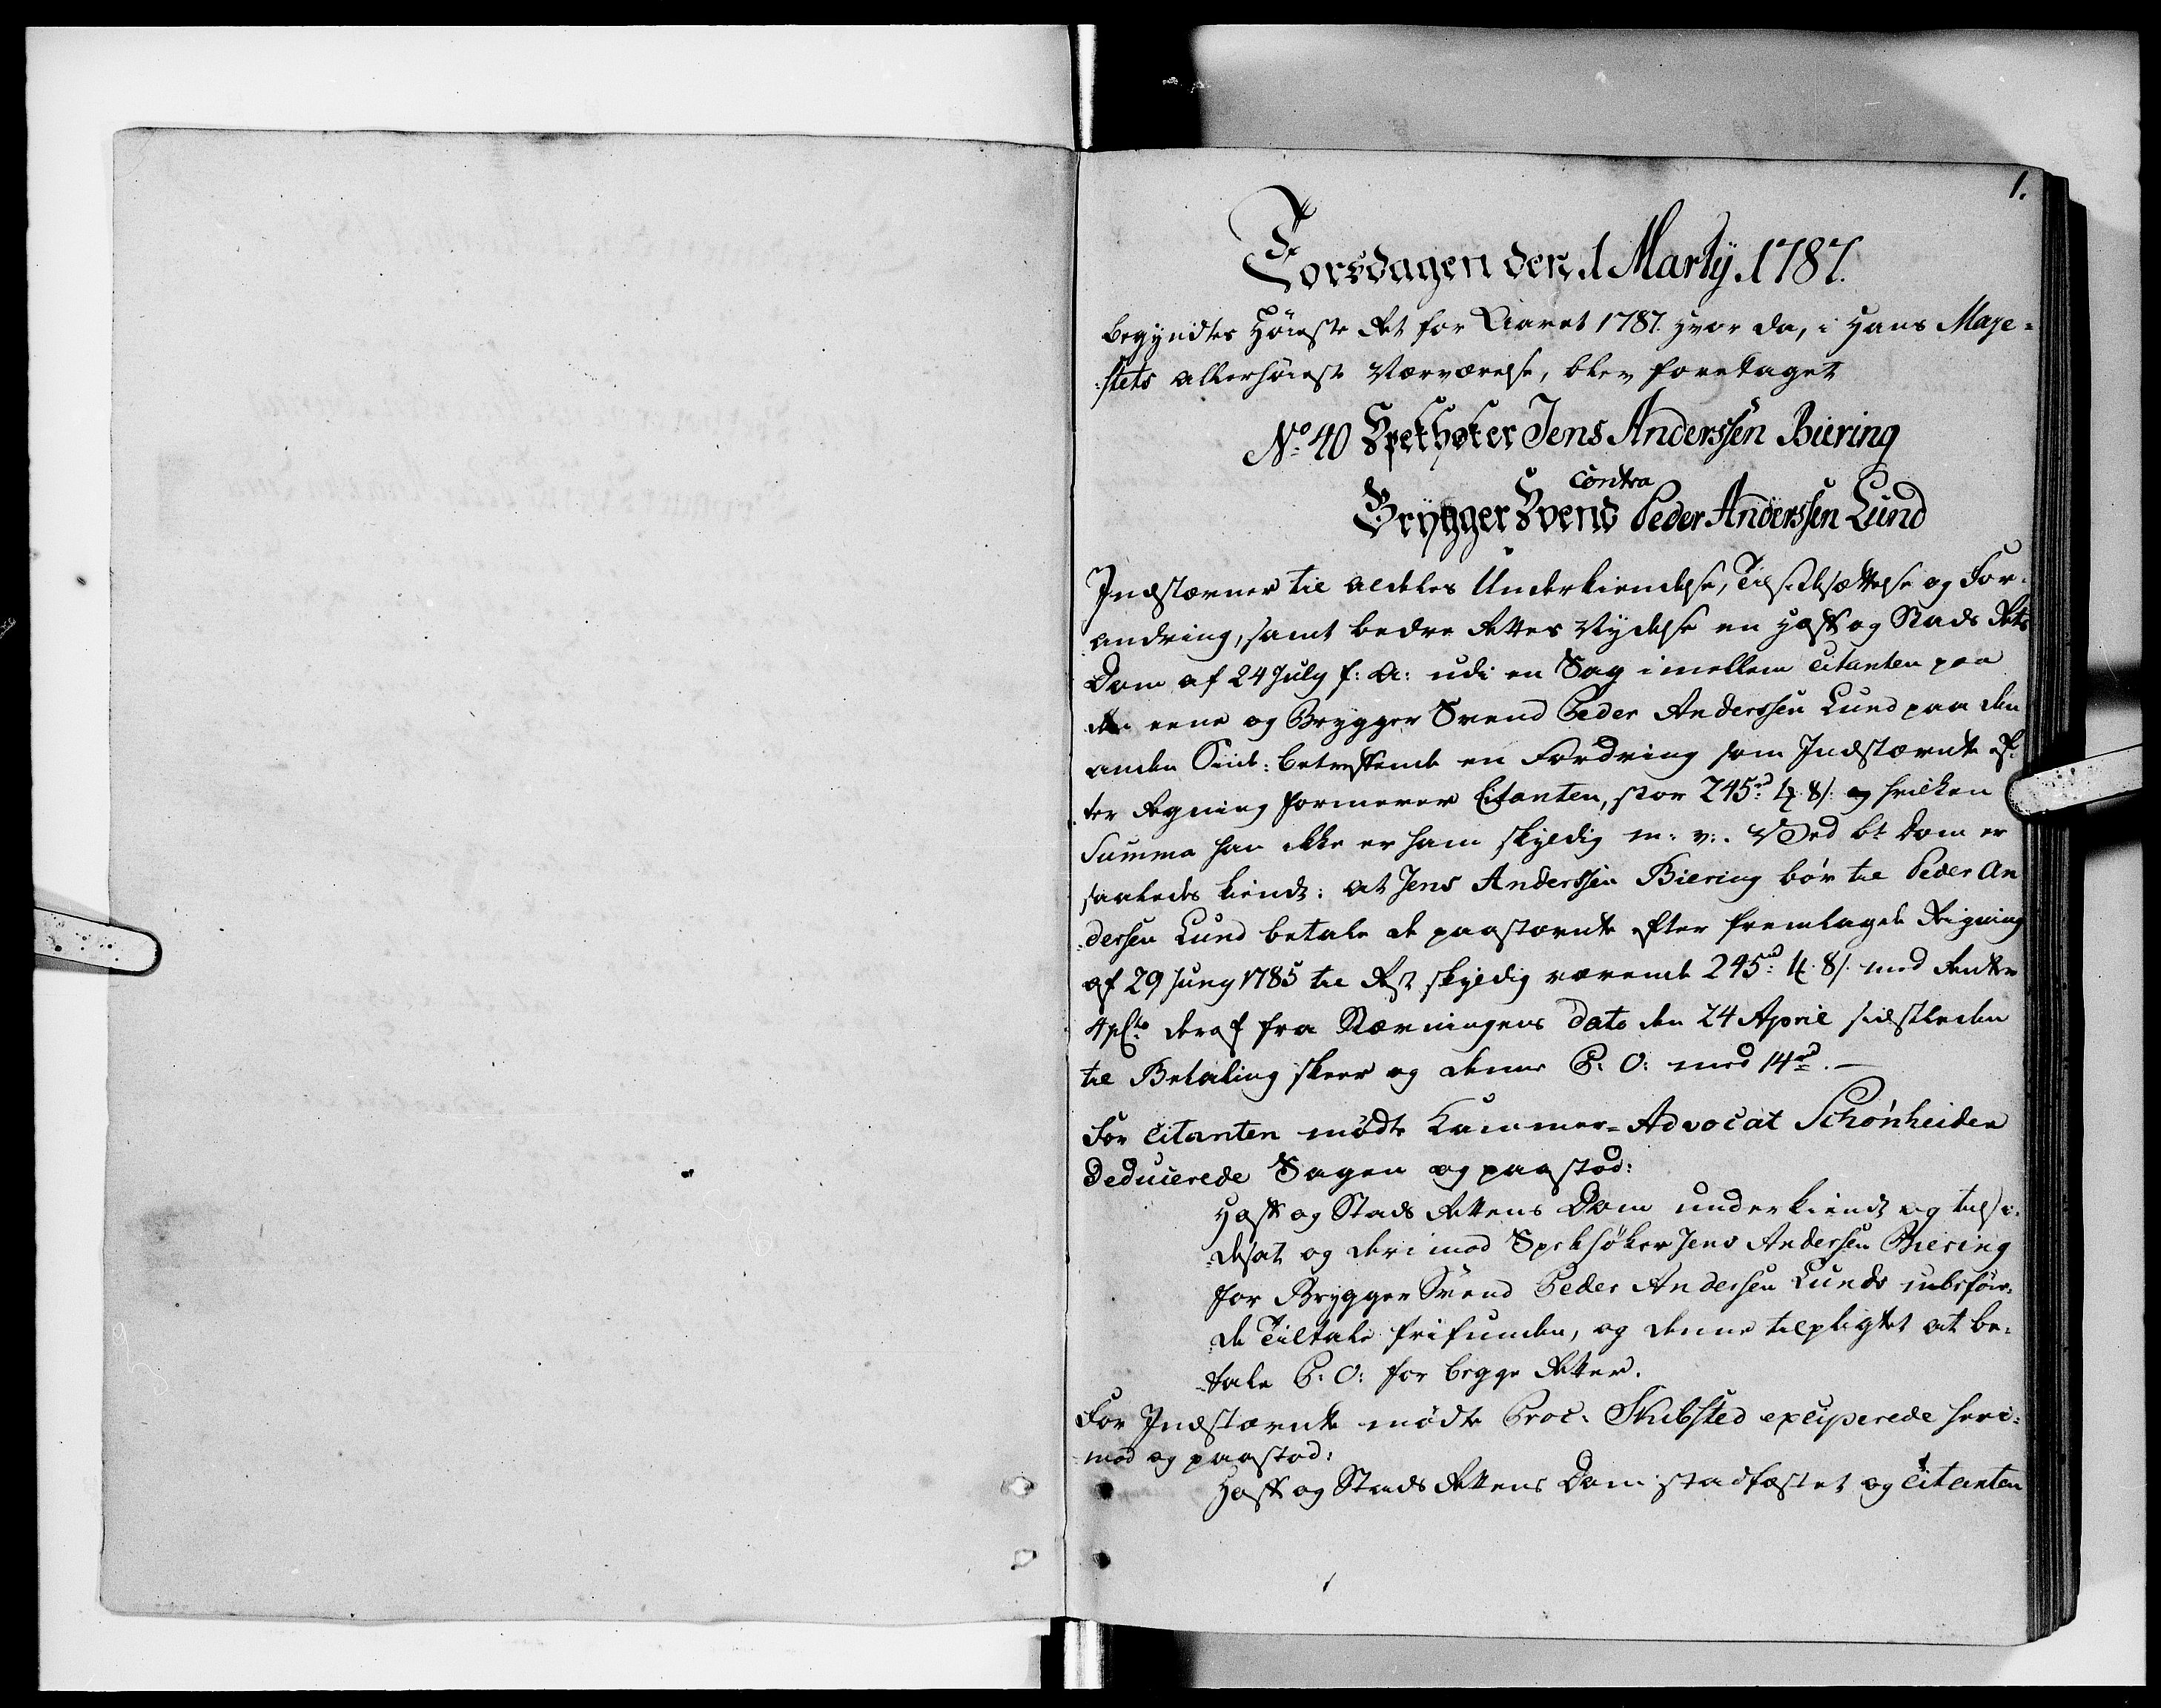 1.
Torsdagen den 1 Martÿ. 1787.
begyndtes Höieste Ret for Aaret 1787. hvor da, i Hans Maje-
stets allerhöieste Nærværelse, blev foretaget
No. 40 Spekhøker Jens Anderssen Biering
contra
Brygger Svend Peder Anderssen Lund
Indstævner til aldeles Underkiendelse, Tilsidesættelse og For-
andring, samt bedre Rettes Nydelse en Hoff og Stads Rets
Dom af 24 July f: A: udi en Sag imellem Citanten paa
den eene og Brygger Svend Peder Anderssen Lund paa den
anden Siide: betreffende en Fordring som Indstævnte ef-
ter Regning formener Citanten, stor 245rd 4 8/ og hvilken
Summa han ikke er ham skyldig m: v:. Ved bte Dom er
saaledes kiendt: at Jens Anderssen Biering bör til Peder An
dersen Lund betale de paastævnte efter fremlagde Reigning
af 29 Juny 1785 til Rest skyldig værende 245rd 4 8/. med Renter
4 pCto deraf fra Stævningens dato den 24 April sidstleden
til Betaling skeer og denne P: O: med 14rd. —
For Citanten mödte Kammer-Advocat Schönheider
deducerede Sagen og paastod:
Hoff og Stads Rettens Dom underkiendt og tilsi-
desat og derimod Spekhöker Jens Andersen Biering
for Brygger Svend Peder Andersen Lunds udeför-
de Tiltale frifunden, og denne tilpligtet at be-
tale P: O: for begge Retter.
For Indstævnte mödte Proc. Skibsted exciperede heri-
mod og paastod:
Hoff og Stads Rettens Dom stadfæstet og Citanten